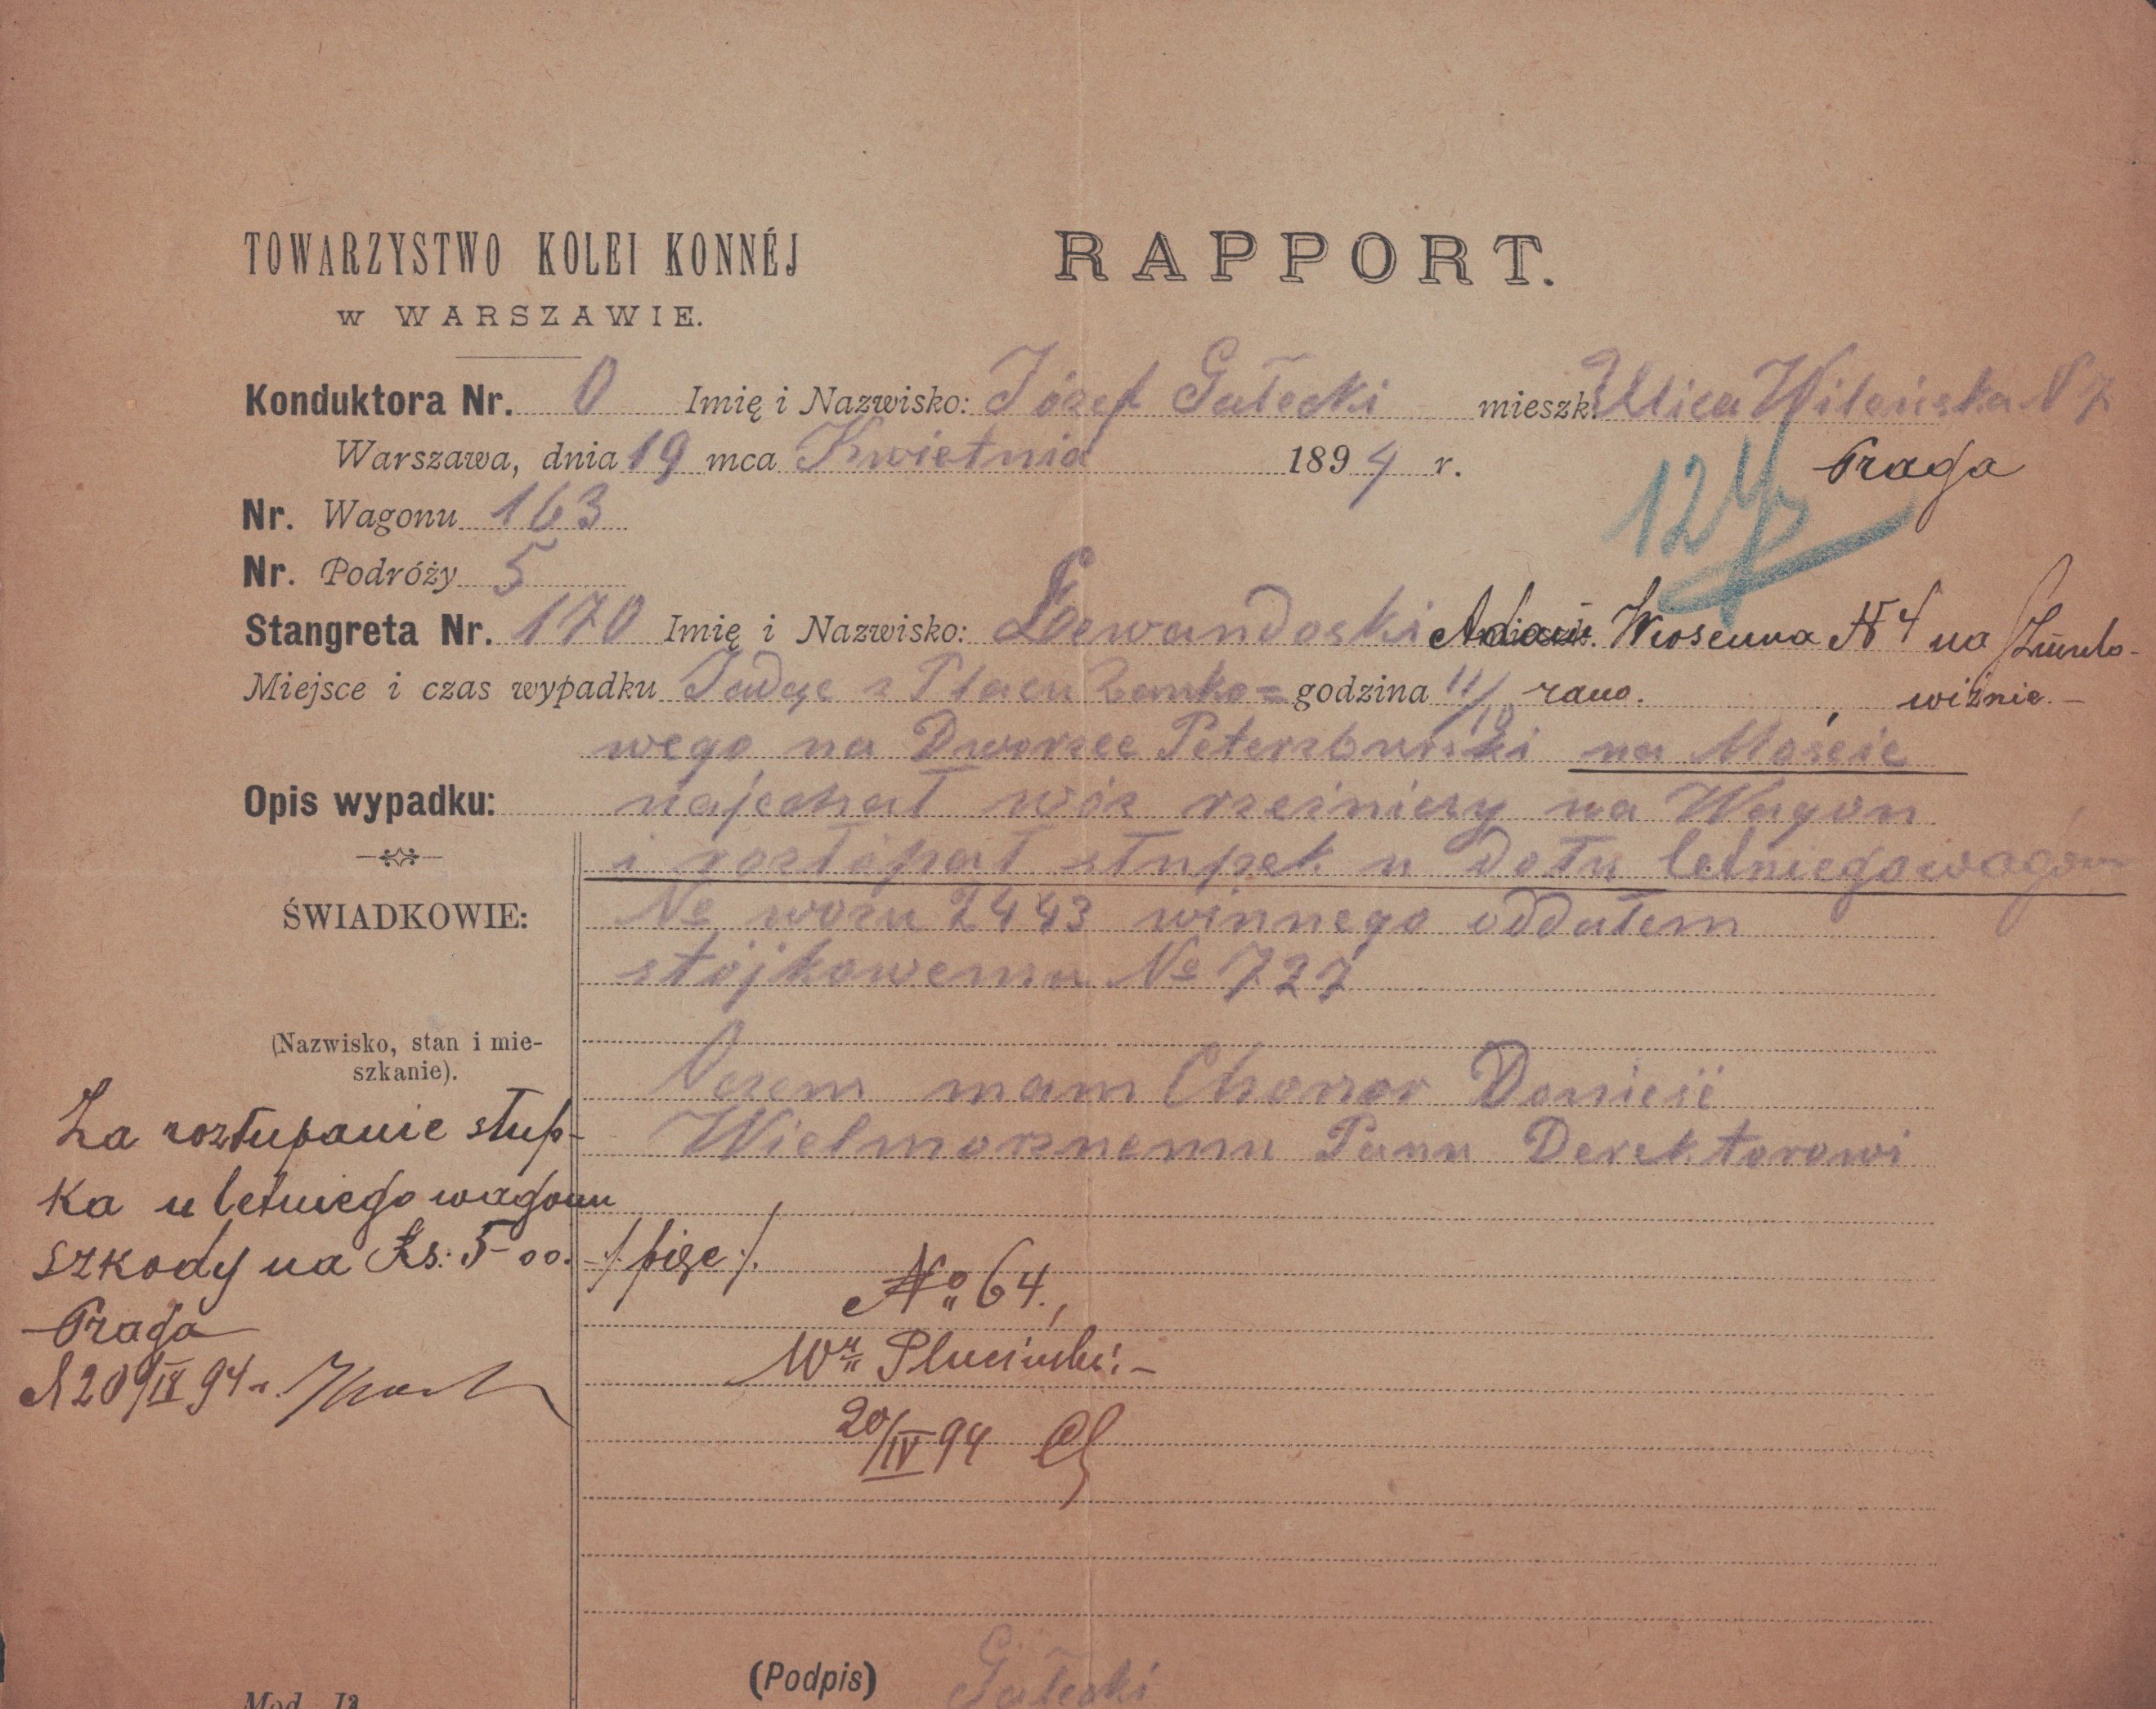 TOWARZYSTWO KOLEI KONNÉJ
w WARSZAWIE.
RAPPORT.
Konduktora Nr. 0 Imię i Nazwisko: Józef Gałecki mieszk. Ulica Wileńska N 7
Warszawa, dnia 19 mca Kwietnia 1894 r. Praga
Nr. Wagonu 163
Nr. Podróży 5
Stangreta Nr. 170 Imię i Nazwisko: Lewandoski Adam Wiosenna № 4 na
Miejsce i czas wypadku Jadąc z Placu Banko= godzina 11/10 rano.
wego na Dworzec Peterzburski na Moście
Opis wypadku: najechał wóz rzeźniczy na Wagon
i rozłópał słupek u dołu letniego wagonu
ŚWIADKOWIE:
№ wozu 2443 winnego oddałem
stójkowemu № 727
(Nazwisko, stan i mie-
szkanie).
Oczem mam Chonor Donieść
Wielmorznemu Panu Derektorowi
Za rozłupanie słup-
ka u letniego wagonu
szkody na Rs: 5-00. /:pięć:/.
Praga
d 20/IV 94 r.
№ 64.
Wn Pluciński.-
20/IV 94
(Podpis) Gałecki
Mod. I